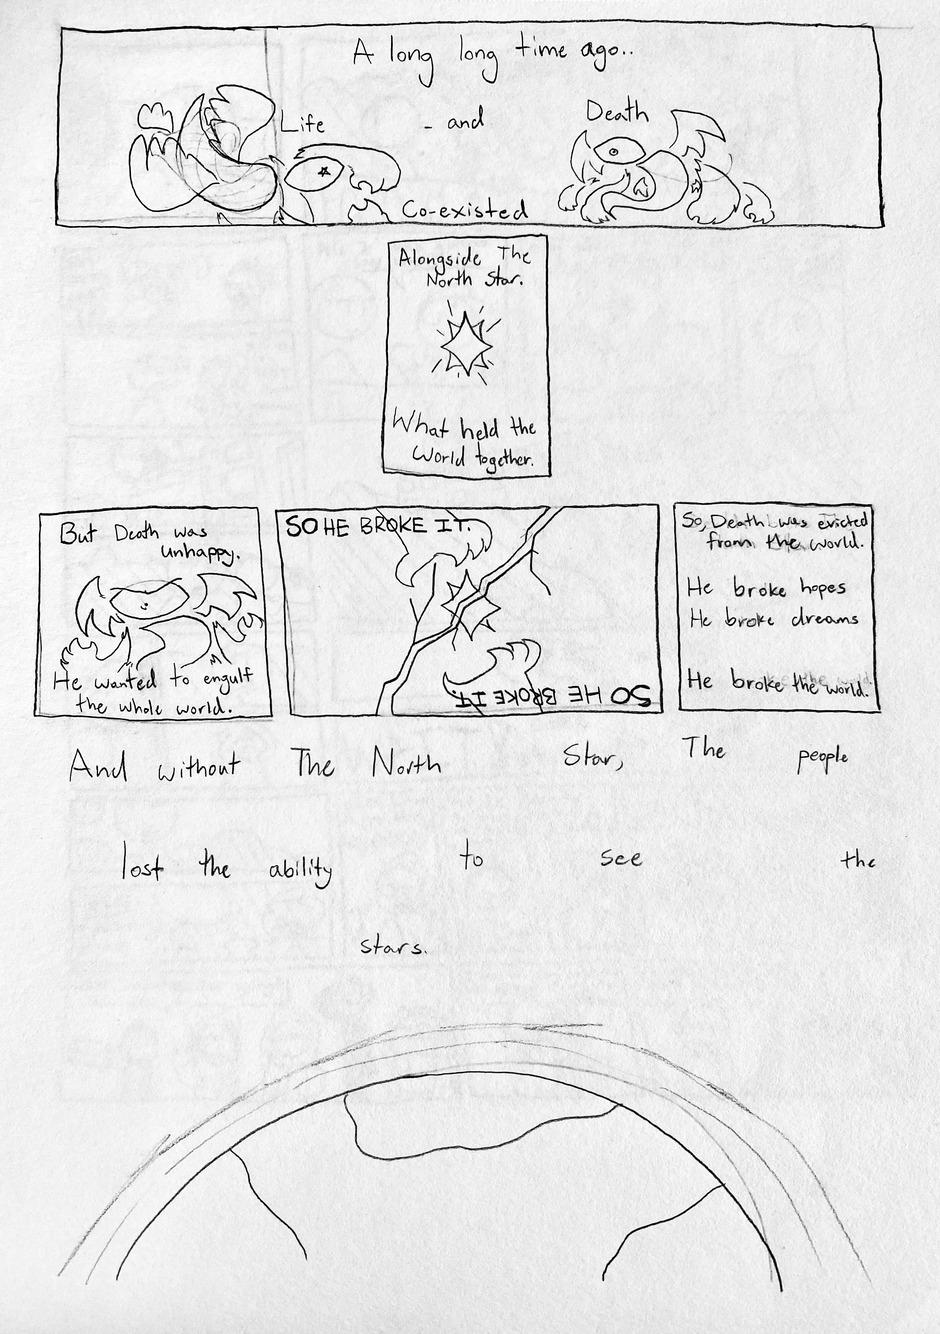 A long long time ago..
Life - and Death
Co-existed
Alongside The
North Star.
What held the
World together.
But Death was
unhappy.
He wanted to engulf
the whole world.
SO HE BROKE IT.
SO HE BROKE IT.
So, Death was evicted
from the world.
He broke hopes
He broke dreams
He broke the world.
And without The North Star, The people
lost the ability to see the
stars.